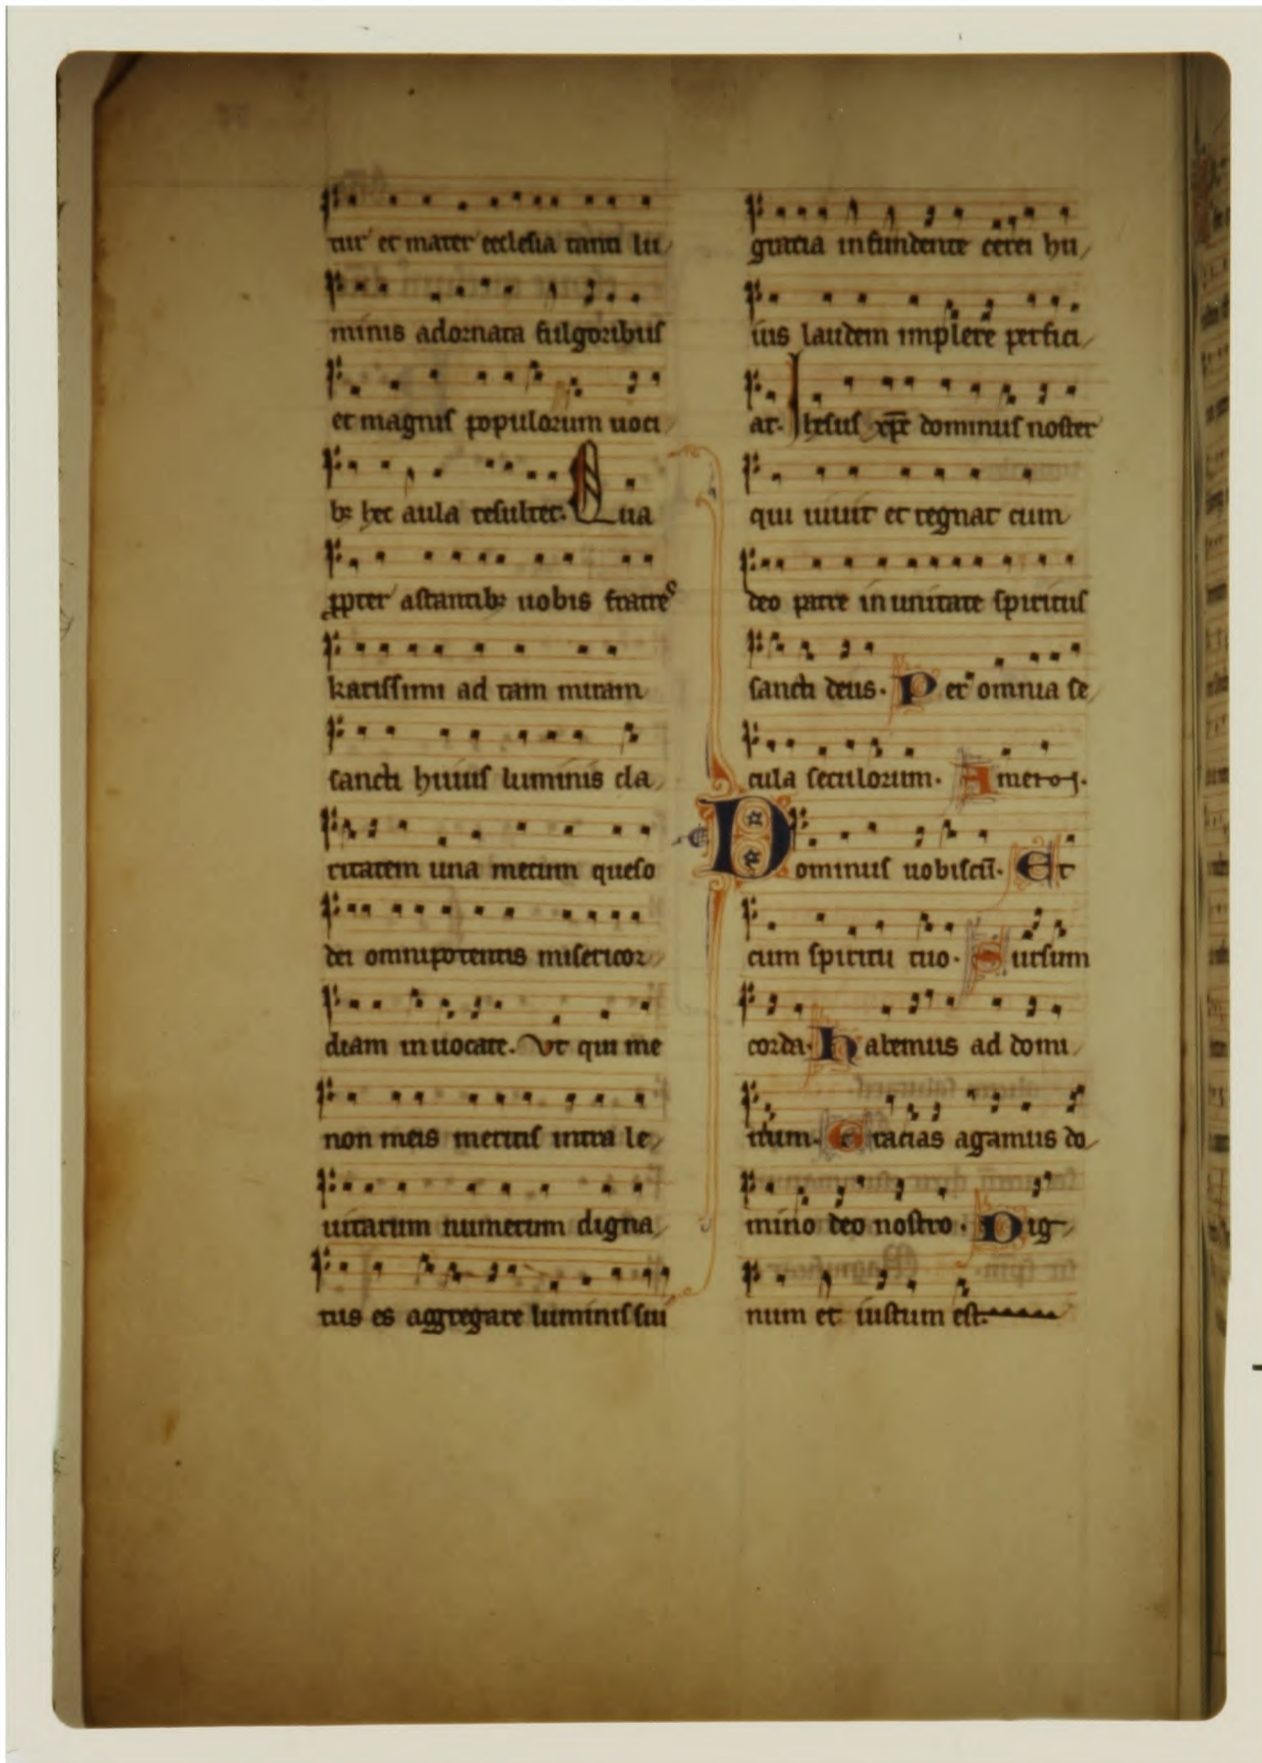 tur et mater ecclesia tanti lu
minis adornata fulgoribus
et magnis populorum uoci
bꝫ hec aula resultet. Qua
ꝓpter astantibꝫ uobis fratreꝰ
karissimi ad tam miram
sancti huius luminis cla
ritatem una mecum queso
dei omnipotentis misericor
diam inuocate. Vt qui me
non meis meritis intra le
uitarum numerum digna
tus es aggregare luminis sui
gratia infundente cerei hu
ius laudem implere perfici
at. Ihesus xp̄c dominus noster
qui uiuit et regnat cum
deo patre in unitate spiritus
sancti deus. Per omnia se
cula seculorum. Amen.
Dominus uobiscū. Et
cum spiritu tuo. Sursum
corda. habemus ad domi
num. Gracias agamus do
mino deo nostro. Dig
num et iustum est.